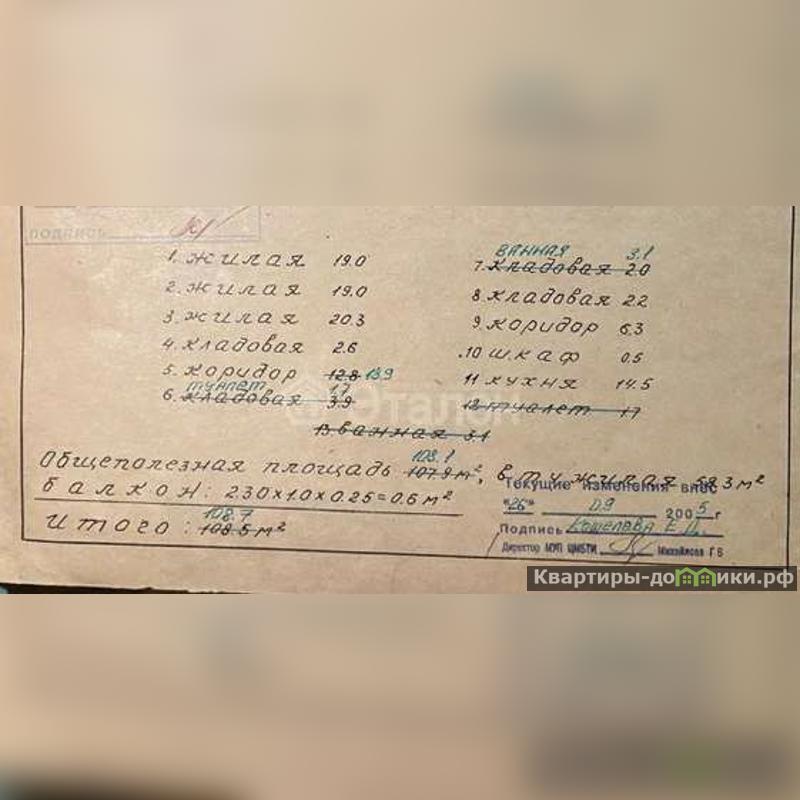 подпись
1. жилая 19.0
2. жилая 19.0
3. жилая 20.3
4. кладовая 2.6
5. коридор 12.8 13.9
туалет 1.7
6. кладовая 3.9
ванная 3.1
7. кладовая 2.0
8. кладовая 2.2
9. коридор 6.3
10 шкаф 0.5
11 кухня 14.5
12 туалет 1.7
13. ванная 3.1
108.1
Общеполезная площадь 107.9 м², в т.ч. жилая 58.3 м²
балкон: 2.30х1.0х0.25=0.6 м²
108.7
Итого: 108.5 м²
Текущие изменения внес
"26" 09 2005г
Подпись Кошелева Е.
Директор МУП
Этало
Квартиры-домики.рф